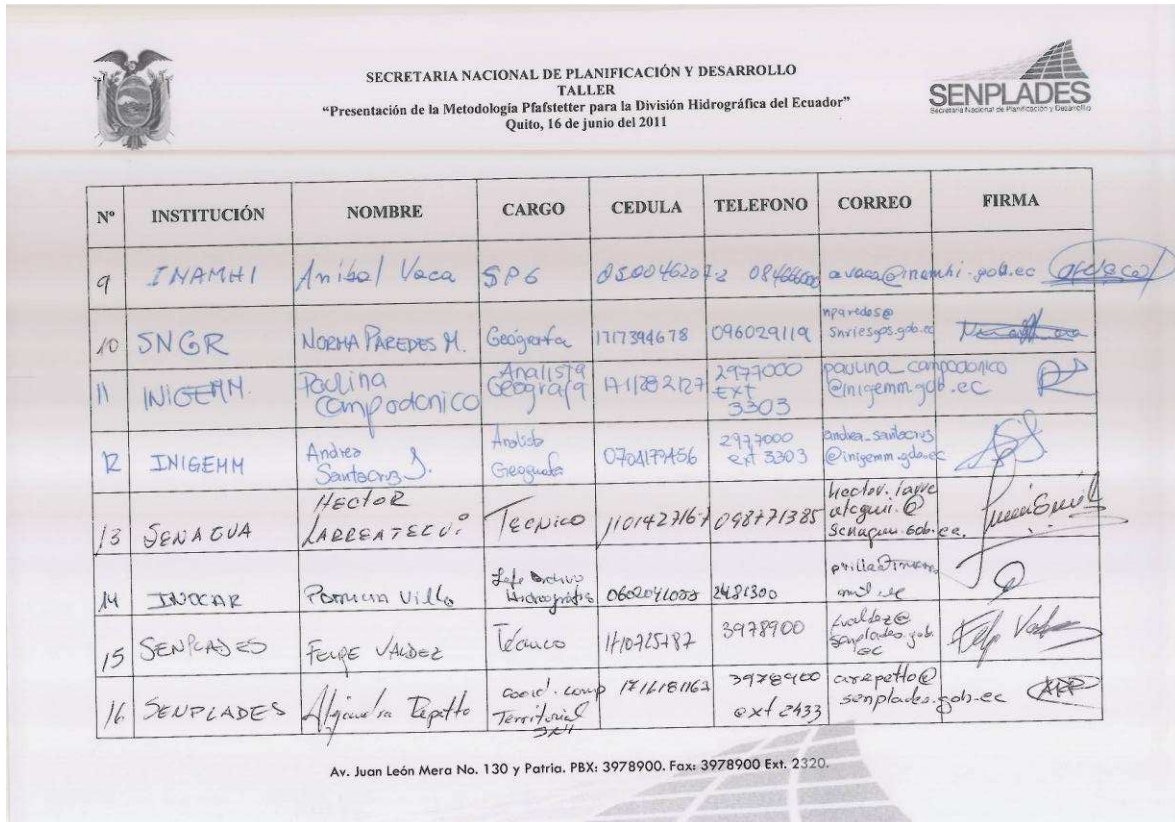 SECRETARIA NACIONAL DE PLANIFICACIÓN Y DESARROLLO
TALLER
“Presentación de la Metodología Pfafstetter para la División Hidrográfica del Ecuador”
Quito, 16 de junio del 2011
SENPLADES
Secretaría Nacional de Planificación y Desarrollo
Nº INSTITUCIÓN NOMBRE CARGO CEDULA TELEFONO CORREO FIRMA
9 INAMHI Anibal Vaca SP6 avaca@inamhi.gob.ec
10 SNGR NORMA PAREDES M. Geógrafa 1717394678 096029119 nparedes@
snriesgos.gob.ec
11 INIGEMM. Paulina
Campodonico Analista
Geógrafa 2977000
EXT
3303 paulina_campodonico
@inigemm.gob.ec
12 INIGEMM Andrea
Santacruz S. Analista
Geógrafa 0704179456 2977000
ext 3303 andrea_santacruz
@inigemm.gob.ec
13 SENAGUA HECTOR
LARREATEGUI TECNICO 1101427167 098771385
14 INOCAR Villa 2481300
15 SENPLADES FELIPE VALDEZ Técnico 3978900 fvaldez@
senplades.gob.
ec
16 SENPLADES Alejandra Repetto Coord. comp
Territorial 3978900
ext 2433 arepetto@
senplades.gob.ec
Av. Juan León Mera No. 130 y Patria. PBX: 3978900. Fax: 3978900 Ext. 2320.